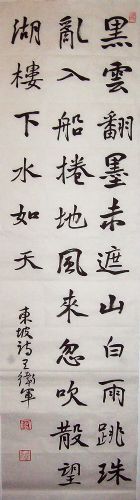 黑雲翻墨未遮山白雨跳珠
亂入船捲地風來忽吹散望
湖樓下水如天
東坡詩王軍